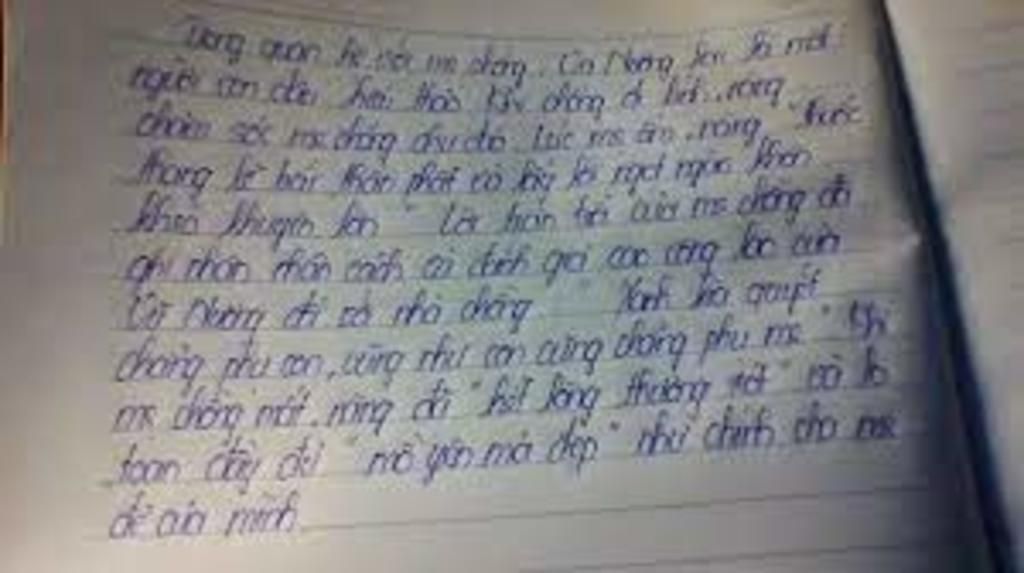 Trong quan hệ với mẹ chồng, Vũ Nương còn là một
người con dâu hiếu thảo. Khi chồng đi lính, nàng
chăm sóc mẹ chồng chu đáo. Lúc mẹ ốm, nàng "thuốc
thang lễ bái thần phật và lấy lời ngọt ngào khôn
khéo khuyên lơn". Lời trăn trối của mẹ chồng đã
ghi nhận nhân cách và đánh giá cao công lao của
Vũ Nương đối với nhà chồng: "Xanh kia quyết
chẳng phụ con, cũng như con cũng chẳng phụ mẹ". Khi
mẹ chồng mất, nàng đã "hết lòng thương xót" và lo
toan đầy đủ "mồ yên mả đẹp" như chính cha mẹ
đẻ của mình.